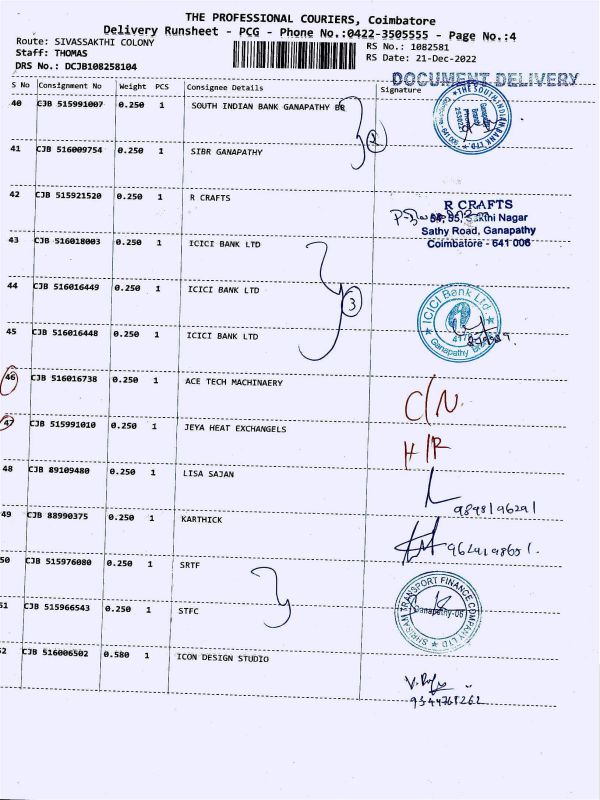 THE PROFESSIONAL COURIERS, Coimbatore
Delivery Runsheet - PCG - Phone No.:0422-3505555 - Page No.:4
Route: SIVASSAKTHI COLONY
Staff: THOMAS
DRS No.: DCJB108258104
RS No.: 1082581
RS Date: 21-Dec-2022
DOCUMENT DELIVERY
S No Consignment No Weight PCS Consignee Details Signature
40 CJB 515991007 0.250 1 SOUTH INDIAN BANK GANAPATHY BR
THE SOUTH INDIAN BANK LTD
41 CJB 516009754 0.250 1 SIBR GANAPATHY
42 CJB 515921520 0.250 1 R CRAFTS
R CRAFTS
54, 55, Sakthi Nagar
Sathy Road, Ganapathy
Coimbatore - 641 006
43 CJB 516018003 0.250 1 ICICI BANK LTD
44 CJB 516016449 0.250 1 ICICI BANK LTD
3
ICICI Bank Ltd
Ganapathy
45 CJB 516016448 0.250 1 ICICI BANK LTD
46 CJB 516016738 0.250 1 ACE TECH MACHINAERY
C/N.
47 CJB 515991010 0.250 1 JEYA HEAT EXCHANGELS
H/R
48 CJB 89109480 0.250 1 LISA SAJAN
49 CJB 88990375 0.250 1 KARTHICK
50 CJB 515976080 0.250 1 SRTF
SHRIRAM TRANSPORT FINANCE COMPANY LTD
Ganapathy-06
51 CJB 515966543 0.250 1 STFC
52 CJB 516006502 0.580 1 ICON DESIGN STUDIO
9344768262